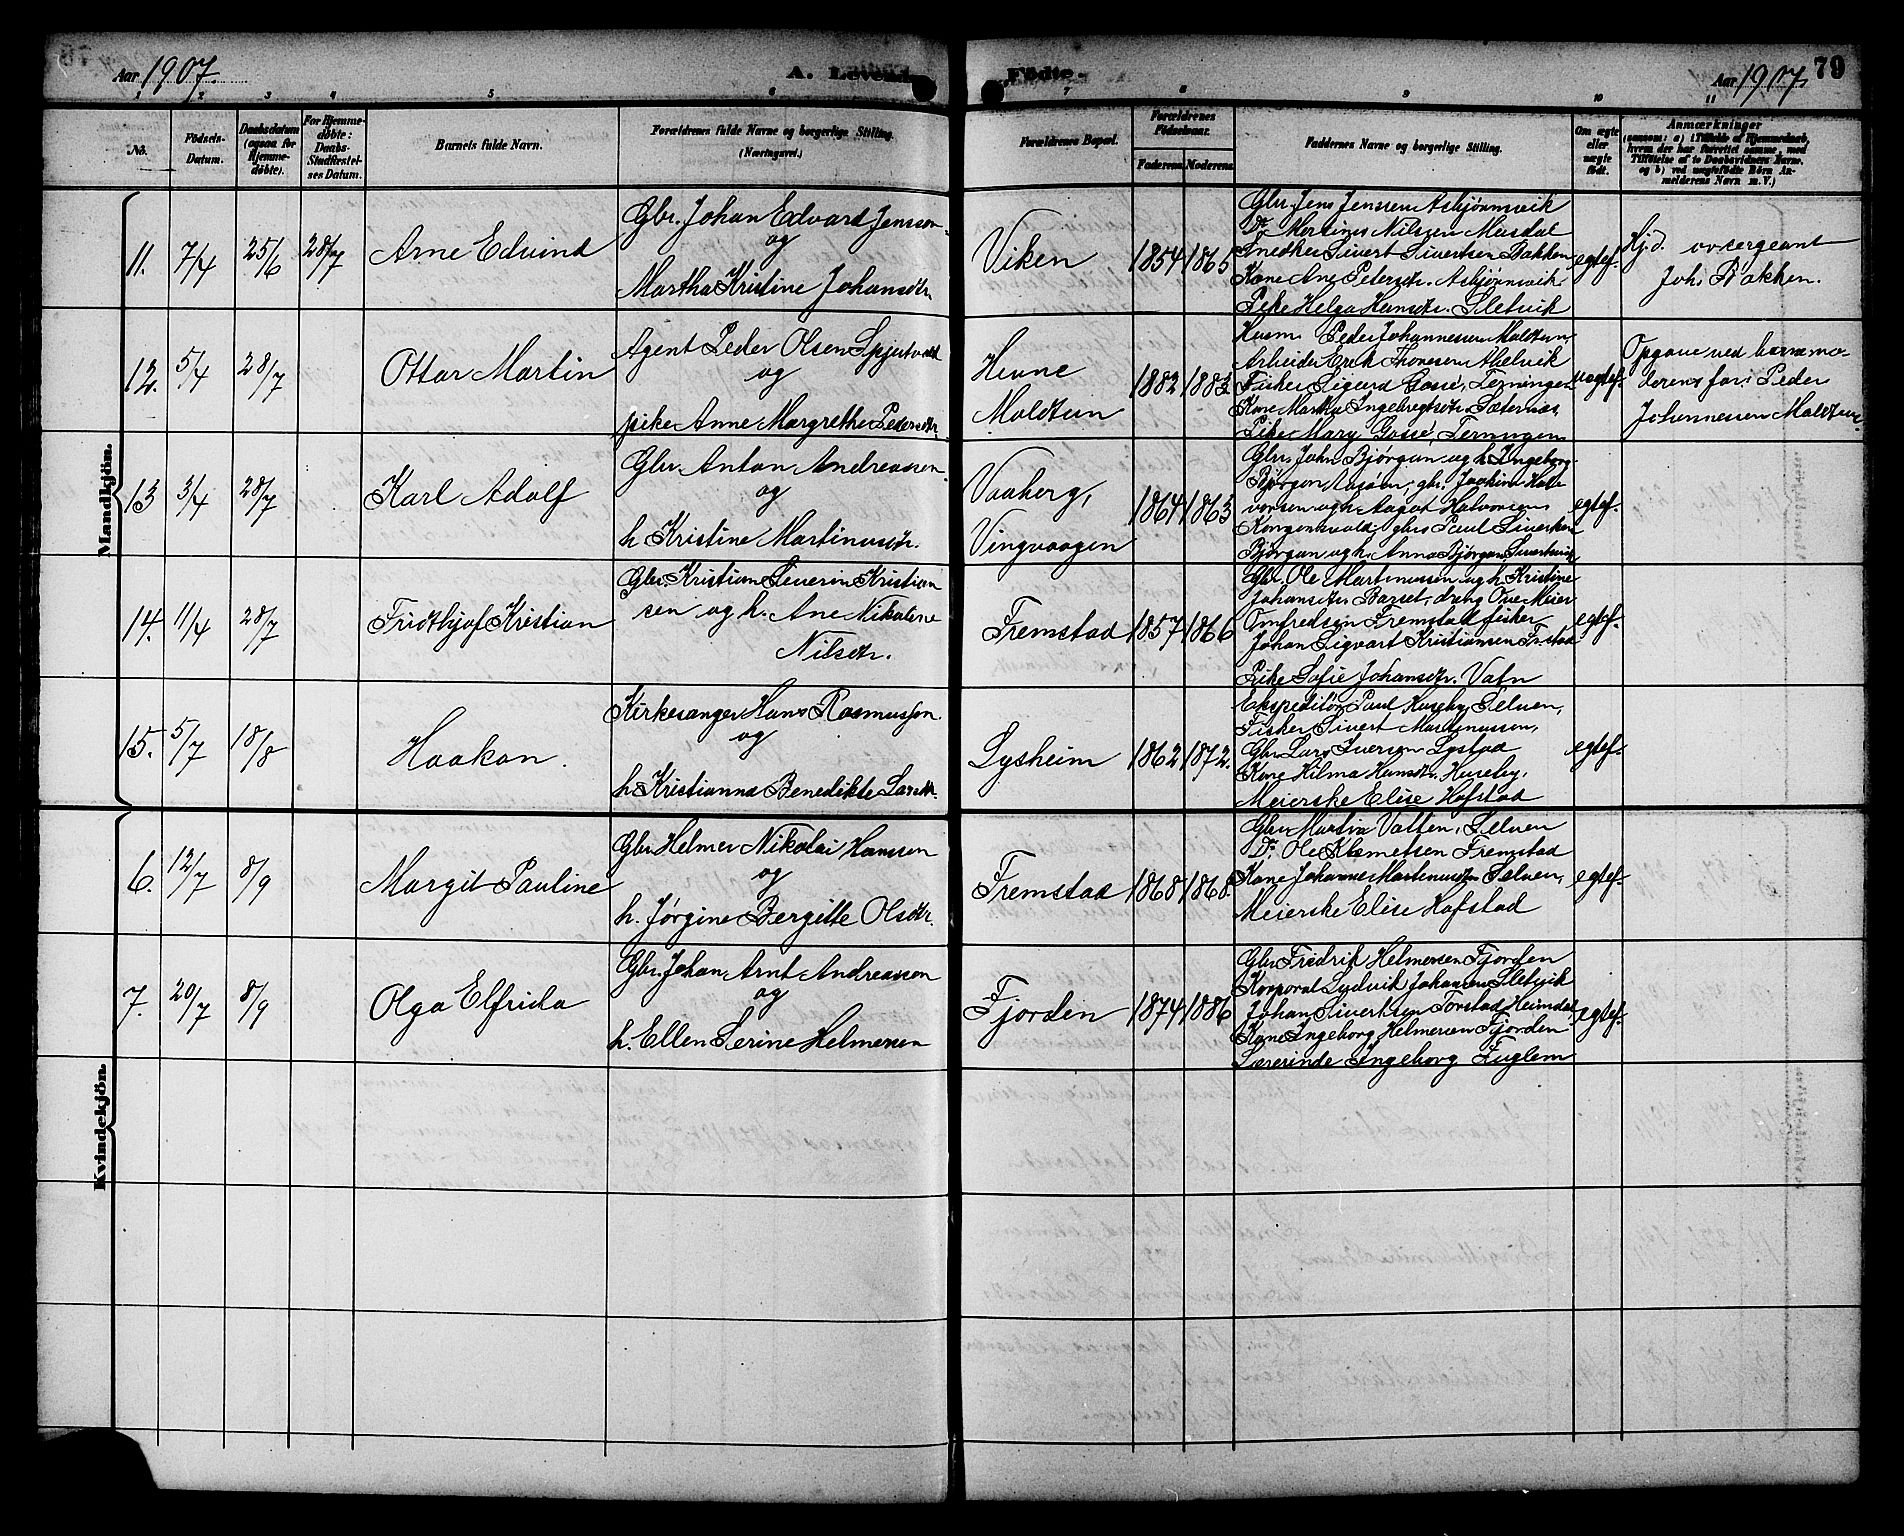 Aar 1907.
A. Levende
Födte.
Aar 1907.
79
1 2 3 4 5 6 7 8 9 10 11
No.
Födsels-
Datum.
Daabsdatum
(ogsaa for
Hjemme-
döbte).
For Hjemme-
döbte:
Daabs-
Stadfæstel-
ses Datum.
Barnets fulde Navn.
Forældrenes fulde Navne og borgerlige Stilling.
(Næringsvei.)
Forældrenes Bopæl.
Forældrenes
Födselsaar.
Faderens
Moderens
Faddernes Navne og borgerlige Stilling.
Om ægte
eller
uægte
födt.
Anmærkninger
Mandkjön.
11.
7/4
25/6
28/7
Arne Edvind
Gbr. Johan Edvard Jensson
og
Martha Kristine Johansdtr.
Viken
1854
1865
Gbr. Jens Jenssen Asbjørnsvik
Do Martines Nilsen Musdal
Snedker Sivert Sivertsen Bakken
Kone Ane Pedersdtr. Asbjørnsvik
Pike Helga Hansdtr. Sletvik
egtef.
Hj.d. av sergeant
Joh. Bakken.
12.
5/4
28/7
Ottar Martin
Agent Peder Olsen
og
pike Anne Margrethe Pedersdtr.
Hevne
Moldtun
1882
1883
Husm. Peder Johannesen Moldtun
Arbeider Erik Thoresen Abelvik
Fisker Sigurd Gossé, Terningen
Kone Martha Ingebregtsdtr. Sæternes,
Pike Mary Gossé, Terningen
uegtef.
Opgave ved barnemo-
derens far: Peder
Johannessen Moldtun
13
3/4
28/7
Karl Adolf
Gbr. Anton Andreassen
og
h Kristine Martinusdtr.
Vaaberg,
Vingvaagen
1864
1863
Gbr. John Bjørgan og h. Ingeborg
Bjørgan gbr. Joakim Hal-
vorsen og h. Aagot Halvorsen
Kongensvold, gbr. Paul Sivertsen
Bjørgan og h. Anna Bjørgan
egtef.
14.
11/4
28/7
Fridthjof Kristian
Gbr. Kristian Severin Kristian
sen og h. Ane Nikoline
Nilsdtr.
Fremstad
1857
1866
Gbr. Ole Martinussen og h. Kristine
Johansdtr. Barset, dreng Ove Meier
Omfredsen Fremstad fisker
Johan Sigvart Kristiansen Fr.stad
Pike Sofie Johansdtr. Vatn
egtef.
15.
5/7
18/8
Haakon.
Kirkesanger Hans Rasmussen
og
h Kristianna Benedikte Larsdtr.
Lysheim
1862
1872.
Ekspeditør Paul Huseby, Selven,
Fisker Sivert Martinussen,
Gbr Lars Iversen Lystad
Kone Hilma Hansdtr. Huseby,
Meierske Elise Hofstad
egtef.
Kvindekjön.
6.
12/7
8/9
Margit Pauline
Gbr Helmer Nikolai Hanssen
og
h. Jørgine Bergitte Olsdtr.
Fremstad
1868
1868.
Gbr Martin Vatten, Selven
Do. Ole Klemetsen Fremstad
Kone Johanne Martinusdtr Selven,
Meierske Elise Hofstad
egtef.
7.
20/7
8/9
Olga Elfrida
Gbr. Johan Arnt Andreassen
og
h. Ellen Serine Helmersen
Fjorden
1874
1886
Gbr Fredrik Helmersen Fjorden
Korporal Lydvik Johansen Sletvik
Johan Sivertsen Torstad Heimdal,
Kone Ingeborg Helmersen Fjorden
Lærerinde Ingeborg Fuglem
egtef.